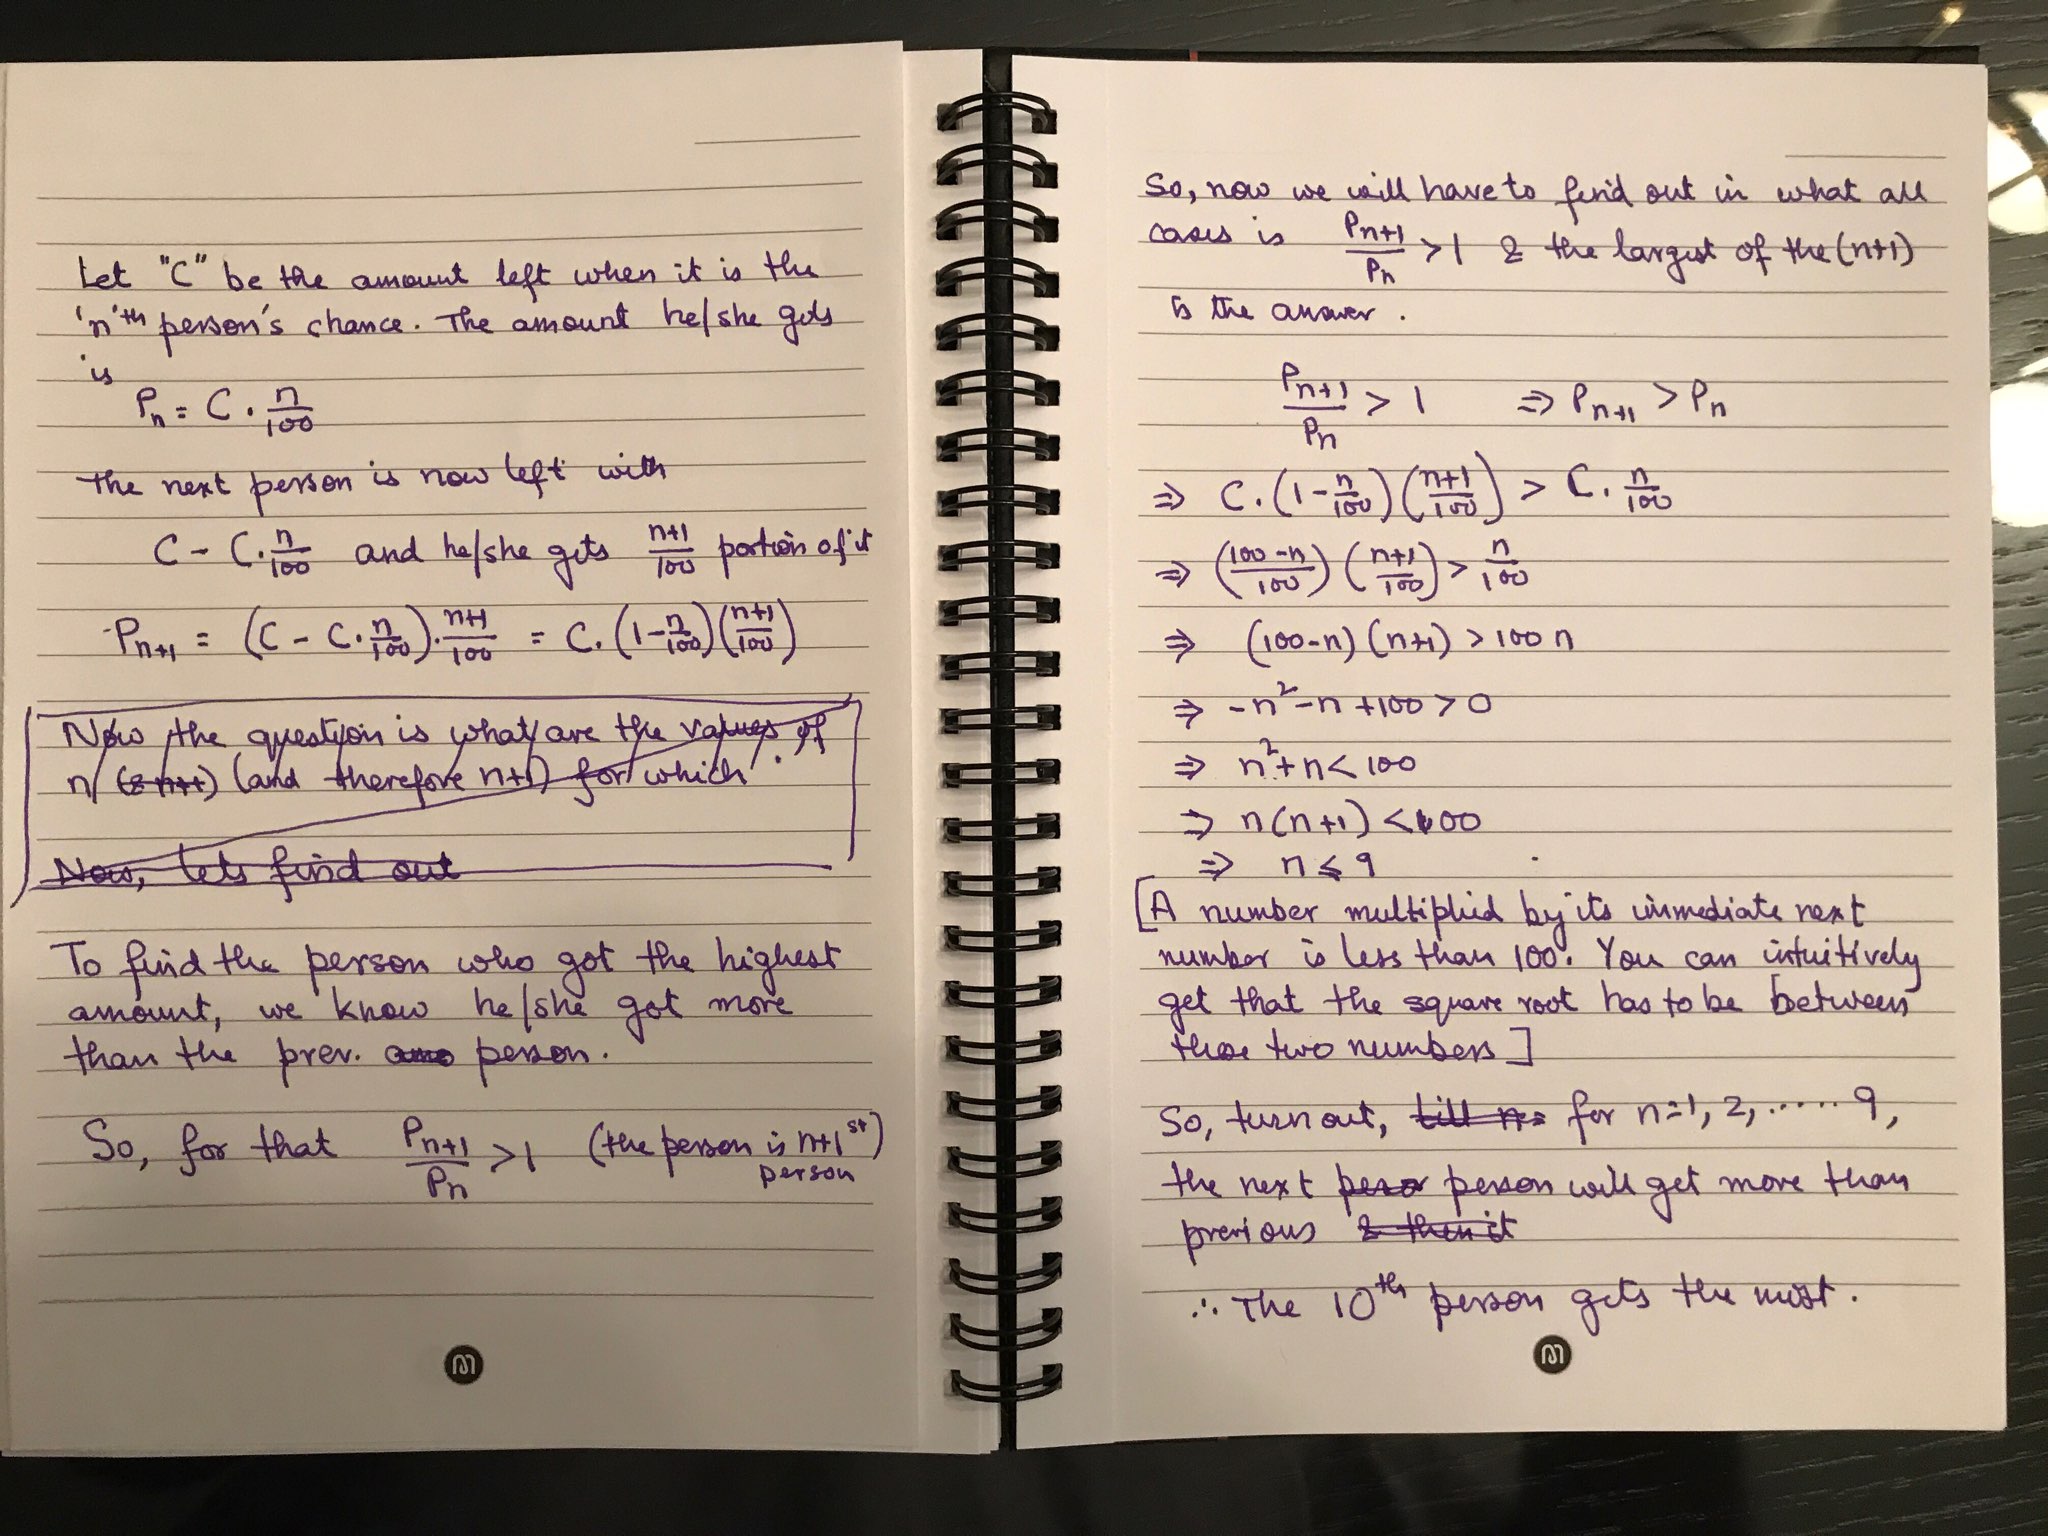 Let "C" be the amount left when it is the
'n'th person's chance. The amount he/she gets
is
Pn = C . n/100
The next person is now left with
C - C.n/100 and he/she gets n+1/100 portion of it
Pn+1 = (C - C.n/100).n+1/100 = C.(1-n/100)(n+1/100)
Now the question is what are the values of
n (& n++) (and therefore n+1) for which
Now, lets find out
To find the person who got the highest
amount, we know he/she got more
than the prev. person.
So, for that Pn+1/Pn > 1 (the person is n+1st
person)
So, now we will have to find out in what all
cases is Pn+1/Pn > 1 & the largest of the (n+1)
is the answer.
Pn+1/Pn > 1 ⇒ Pn+1 > Pn
⇒ C.(1-n/100)(n+1/100) > C.n/100
⇒ (100-n/100)(n+1/100) > n/100
⇒ (100-n)(n+1) > 100n
⇒ -n²-n+100 > 0
⇒ n²+n < 100
⇒ n(n+1) < 100
⇒ n ≤ 9
[A number multiplied by its immediate next
number is less than 100. You can intuitively
get that the square root has to be between
those two numbers]
So, turn out, till n= for n=1, 2, ..... 9,
the next perso person will get more than
previous & then it
∴ The 10th person gets the most.